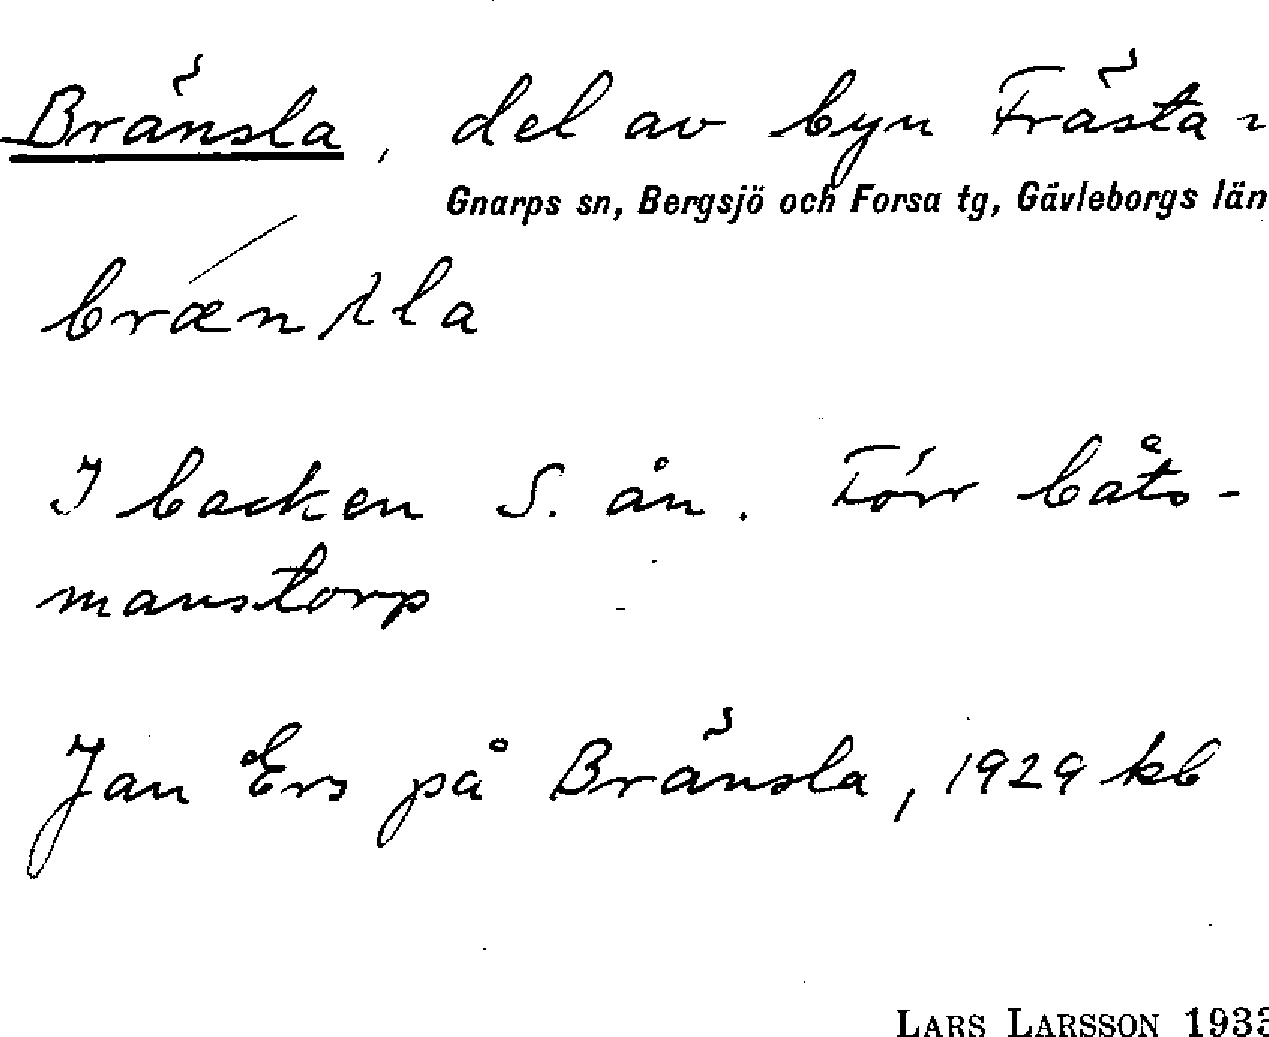 Bränsla, del av byn Frästa-
Gnarps sn, Bergsjö och Forsa tg, Gävleborgs län
I backen S. ån. Förr båts-
manstorp
Jan Ers på Bränsla, 1929 kb
LARS LARSSON